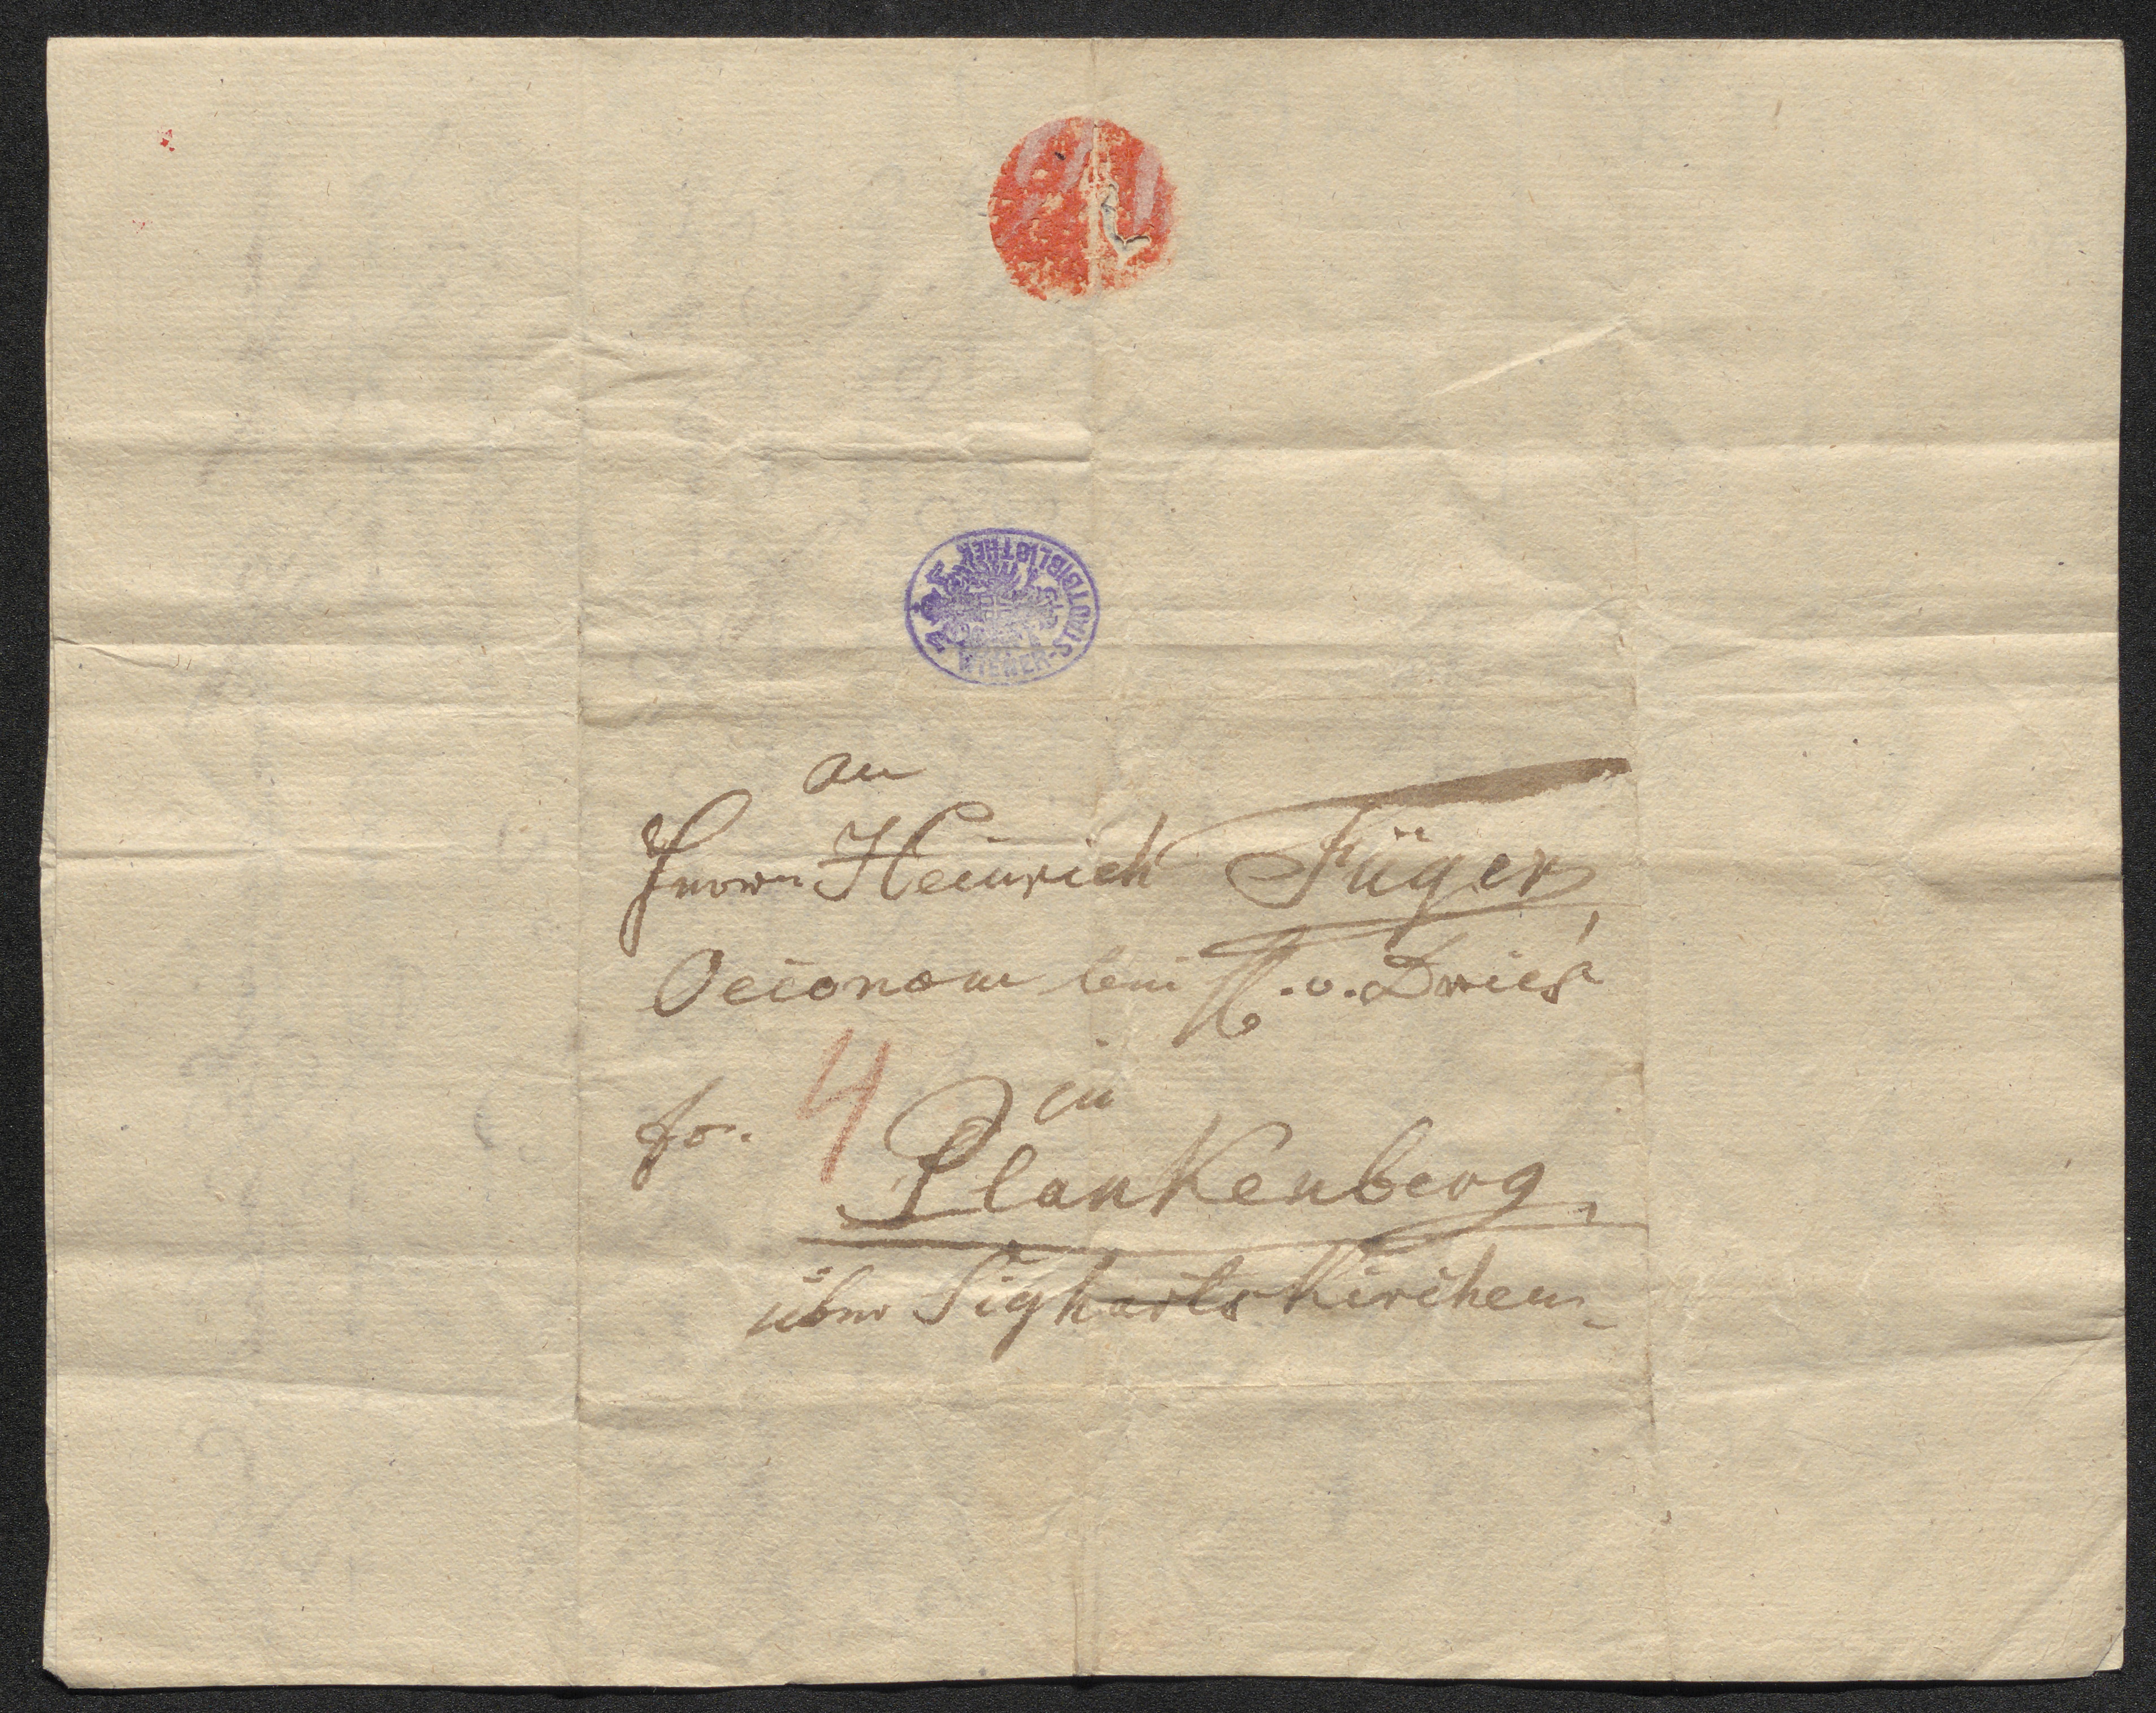 WIENER-STADTBIBLIOTHEK
an
Herrn Heinrich Füger
Oeconom beim H. v. Dries
in
fr. 4
Plankenberg
über Sighartskirchen